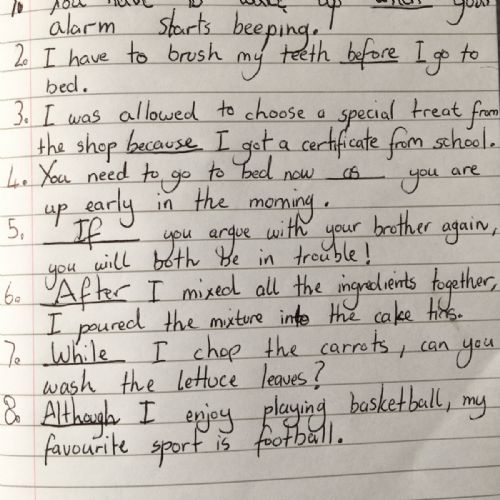 1. You have to wake up when your
alarm starts beeping.
2. I have to brush my teeth before I go to
bed.
3. I was allowed to choose a special treat from
the shop because I got a certificate from school.
4. You need to go to bed now as you are
up early in the morning.
5. If you argue with your brother again,
you will both be in trouble!
6. After I mixed all the ingredients together,
I poured the mixture into the cake tins.
7. While I chop the carrots, can you
wash the lettuce leaves?
8. Although I enjoy playing basketball, my
favourite sport is football.